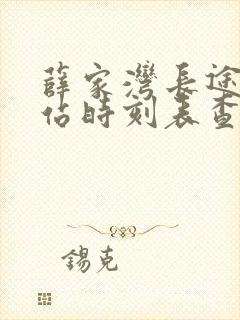 薛家灣長途
佔時刻表查
錫克